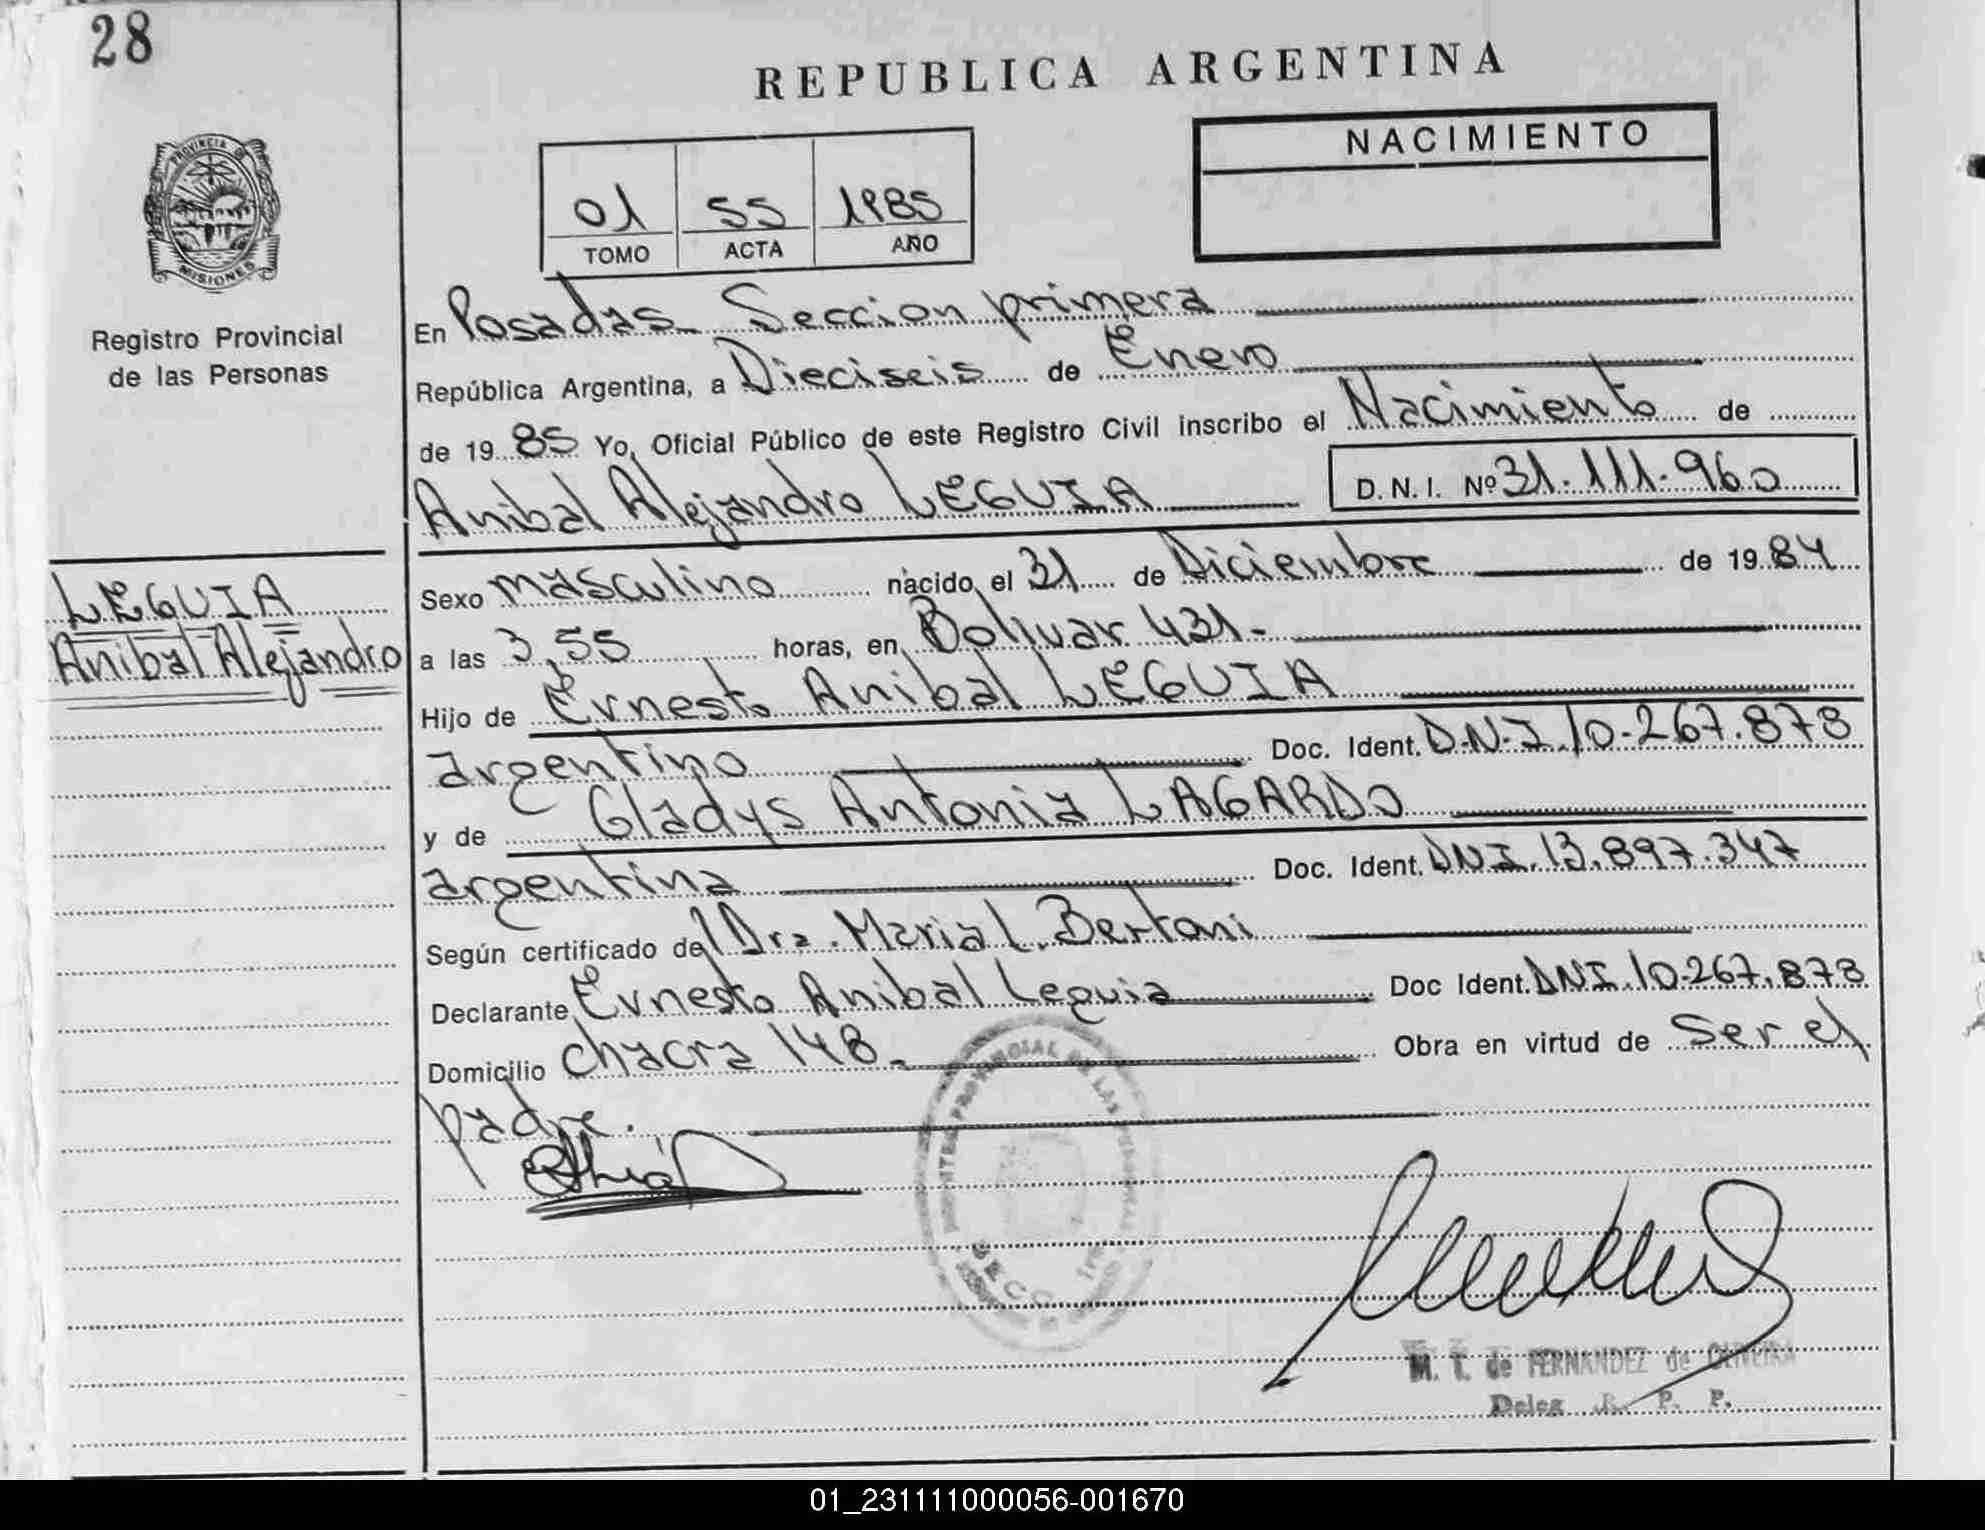 28
REPUBLICA ARGENTINA
NACIMIENTO
01 55 1985
TOMO ACTA AÑO
PROVINCIA DE
MISIONES
Registro Provincial
de las Personas
En Posadas Seccion primera
República Argentina, a Dieciseis de Enero
de 19 85 Yo, Oficial Público de este Registro Civil inscribo el Nacimiento de
Anibal Alejandro LEGUIA D.N.I. Nº 31.111.960
LEGUIA
Anibal Alejandro
Sexo masculino nacido el 31 de Diciembre de 19 84
a las 3,55 horas, en Bolivar 431.-
Hijo de Ernesto Anibal LEGUIA
argentino Doc. Ident. D.N.I. 10.267.878
y de Gladys Antonia LAGARDO
argentina Doc. Ident. DNI. 13.897.347
Según certificado de Dra. Maria L. Bertoni
Declarante Ernesto Anibal Leguia Doc Ident. DNI. 10.267.878
Domicilio chacra 148.- Obra en virtud de ser el
padre.
M. T. de FERNANDEZ de OLIVEIRA
Deleg. R. P. P.
01_231111000056-001670